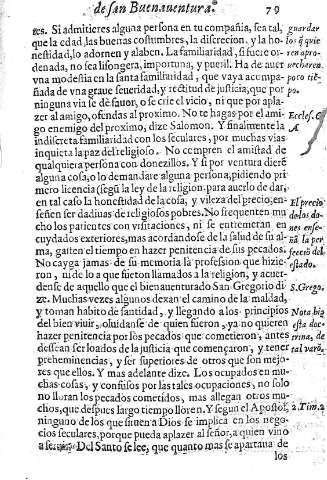 de san Buenauentura.
79
ges. Si admitieres alguna persona en tu compañia, sea tal,
que la edad, las buenas costumbres, la discrecion, y la ho-
nestidad, lo adornen y alaben. La familiaridad, si fuere or-
denada, no sea lisongera, importuna, y pueril. Ha de auer
vna modestia en la santa familiaridad, que vaya acompa-
ñada de vna graue seueridad, y rectitud de justicia, que por
ninguna via le dè fauor, o se crie el vicio, ni que por apla-
zer al amigo, ofendas al proximo. No te hagas por el ami-
go enemigo del proximo, dize Salomon. Y finalmente la
indiscreta familiaridad con los seculares, por muchas vias
inquieta la paz del religioso. No compren el amistad de
qualquiera persona con donezillos. Y si por ventura dieré
alguna cosa, o lo demandare alguna persona, pidiendo pri-
mero licencia (segũ la ley de la religion. para auerlo de dar,
en tal caso la honestidad de la cosa, y vileza del precio, en-
señen ser dadiuas de religiosos pobres. No frequenten mu
cho los parientes con visitaciones, ni se entremetan en
cuydados exteriores, mas acordandose de la salud de su ani-
ma, gasten el tiempo en hazer penitencia de sus pecados.
No cayga jamas de su memoria la profession que hizie-
ron, ni de lo a que fueron llamados a la religion, y acuer-
dense de aquello que el bienauenturado San Gregorio di-
ze. Muchas vezes algunos dexan el camino de la maldad,
y toman habito de santidad, y llegando a los principios
del bien viuir, oluidanse de quien fueron, ya no quieren
hazer penitencia por los pecados que cometieron, antes
dessean ser loados de la justicia que començaron, y tener
preheminencias, y ser superiores de otros que son mejo-
res que ellos. Y mas adelante dize. Los ocupados en mu-
chas cosas, y confusos por las tales ocupaciones, no solo
no lloran los pecados cometidos, mas allegan otros mu-
chos, que despues largo tiempo lloren. Y segun el Apostol,
ninguno de los que siruen a Dios se implica en los nego-
cios seculares, porque pueda aplazer al señor, a quien vino
Del Santo se lee, que quanto mas se apartaua de
los
guardar
Eccles.
El precio
de los do-
nes ense-
ña la per
feciō del
estado.
S. Grego.
Nota biẽ
esta doc-
trina, de
tal varō.
2. Tim. 2